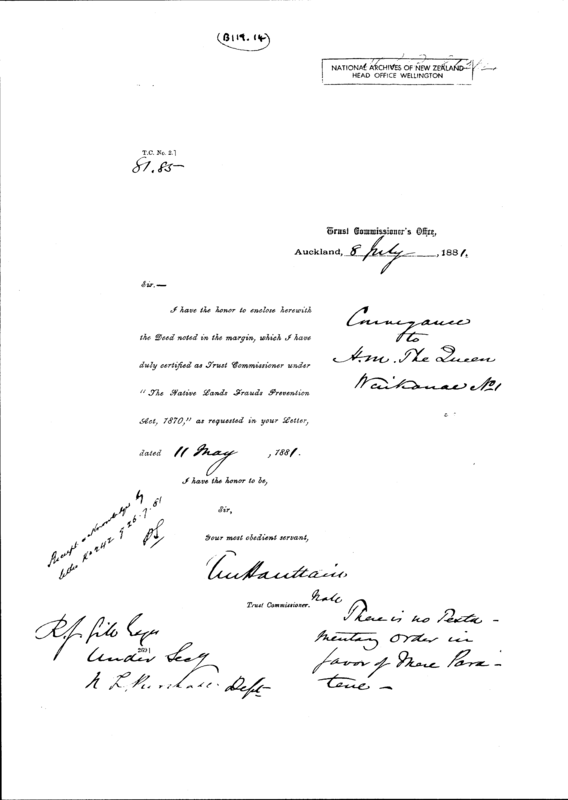 (B119.14)
NATIONAL ARCHIVES OF NEW ZEALAND
HEAD OFFICE WELLINGTON
T.C. No. 2.]
81.85
Trust Commissioner's Office,
Auckland, 8 July, 1881.
Sir.—
I have the honor to enclose herewith
the Deed noted in the margin, which I have
duly certified as Trust Commissioner under
"The Native Lands Frauds Prevention
Act, 1870," as requested in your Letter,
dated 11 May, 1881.
I have the honor to be,
Sir,
Your most obedient servant,
Trust Commissioner.
Conveyance
to
H.M. The Queen
Waikanae No 1
Receipt acknowledged by
letter No 242 of 26.7.81
Note
There is no Testa-
mentary order in
favor of Mere Para-
tene —
R.J. Gill Esqre
Under Secy
N. L. Purchase Dept